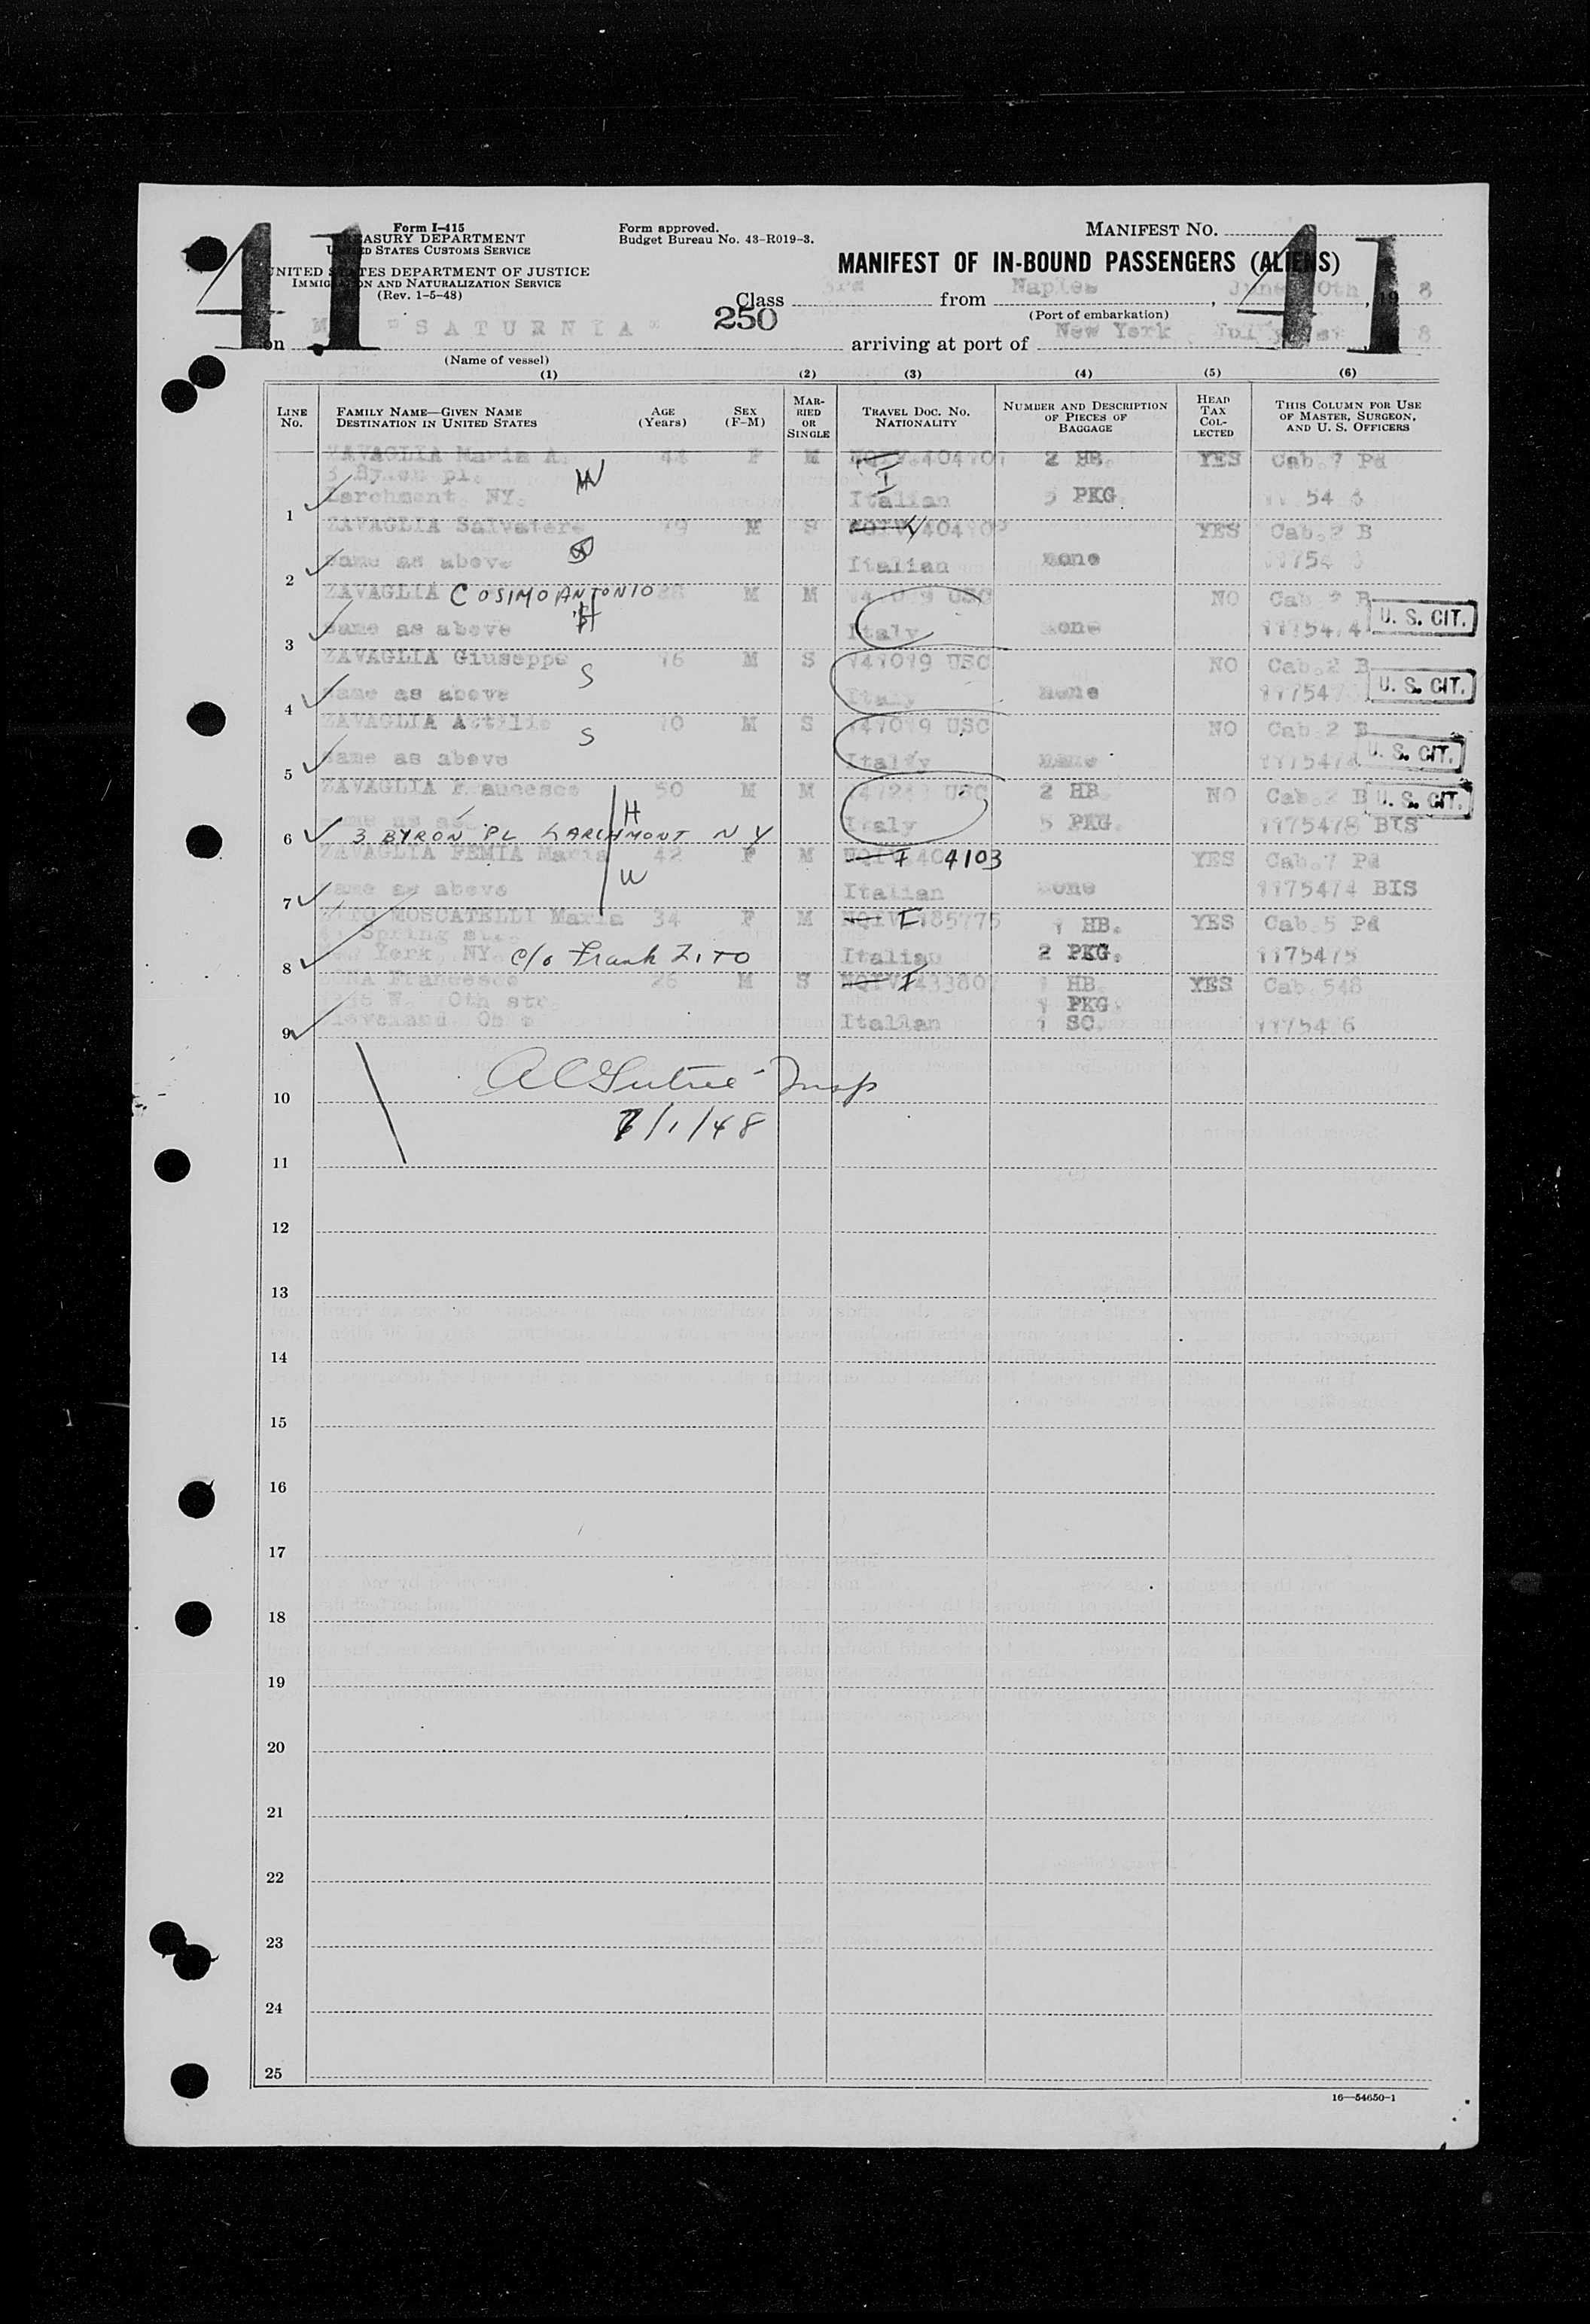 41
Form I-415
TREASURY DEPARTMENT
UNITED STATES CUSTOMS SERVICE
UNITED STATES DEPARTMENT OF JUSTICE
IMMIGRATION AND NATURALIZATION SERVICE
(Rev. 1-5-48)
Form approved.
Budget Bureau No. 43-R019-3.
MANIFEST NO.
41
MANIFEST OF IN-BOUND PASSENGERS (ALIENS)
Class 3rd from Naples, June 19 8
(Port of embarkation)
250
on "SATURNIA" arriving at port of New York July 8
(Name of vessel)
(1) (2) (3) (4) (5) (6)
LINE No. FAMILY NAME—GIVEN NAME DESTINATION IN UNITED STATES AGE (Years) SEX (F-M) MARRIED OR SINGLE TRAVEL DOC. NO. NATIONALITY NUMBER AND DESCRIPTION OF PIECES OF BAGGAGE HEAD TAX COLLECTED THIS COLUMN FOR USE OF MASTER, SURGEON, AND U. S. OFFICERS
ZAVAGLIA Maria A. 44 F M 2 HB. YES Cab.7 Pd
3 Byron pl. I
1 Larchmont NY. Italian 5 PKG.
ZAVAGLIA Salvatore M S YES Cab.2 B
2 same as above W Italian none
ZAVAGLIA COSIMO ANTONIO M M USC NO Cab 2 B
3 same as above H Italy none U. S. CIT.
ZAVAGLIA Giuseppe 16 M S USC NO Cab.2 B
4 same as above S Italy none U. S. CIT.
ZAVAGLIA Attilio 10 M S USC NO Cab 2 B
5 same as above S Italy none U. S. CIT.
ZAVAGLIA Francesco 50 M M USC 2 HB NO Cab.2 B U. S. CIT.
6 3 BYRON PL LARCHMONT N Y H Italy 5 PKG. 1175478 BIS
ZAVAGLIA FEMIA Maria 42 F M I 404103 YES Cab.7 Pd
7 same as above W Italian none 1175474 BIS
ZITO MOSCATELLI Maria 34 F M I 185775 1 HB. YES Cab.5 Pd
Spring str.
8 New York, NY. c/o Frank Zito Italian 2 PKG. 1175475
Francesco 26 M S I 1 HB. YES Cab 548
1 PKG.
9 Cleveland Italian 1 SC.
10 Insp
7/1/48
11
12
13
14
15
16
17
18
19
20
21
22
23
24
25
16—54650-1